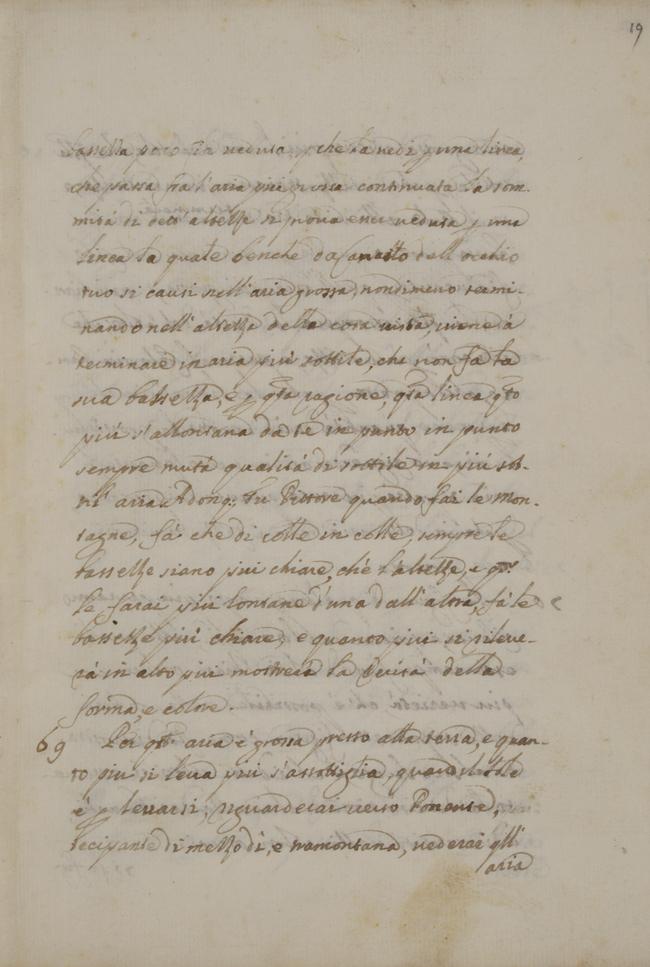 19
bassezza poco ... veduta, che la vedi p una linea,
che passa fra l'aria più grossa continuata la som-
mità di dett'altezze si prova esser veduta p una
linea la quale benche da canto dell'occhio
tuo si causi nell'aria grossa, nondimeno termi-
nando nell'altezza della cosa vista, viene à
terminare in aria più sottile, che non fa la
sua bassezza, e p qta ragione, qta linea qto
più s'allontana da te in punto in punto
sempre mutà qualità di sottile in più sot-
til' aria. Adonq; Tu Pittore quando fai le mon-
tagne, fà che di colle in colle, sempre le
bassezze siano più chiare, che l'altezze, e qto
le farai più lontane d'una dall'altra, fà le
bassezze più chiare, e quanto più si rileve-
rà in alto più mostrerà la verità della
forma, e colore.
69 Per qto aria è grossa presso alla terra, e quan-
to piu si leva più s'assottiglia, quando il sole
è p levarsi, riguarderai verso Ponente,
Partecipante di mezzo dì, e tramontana, vederai qll'
aria